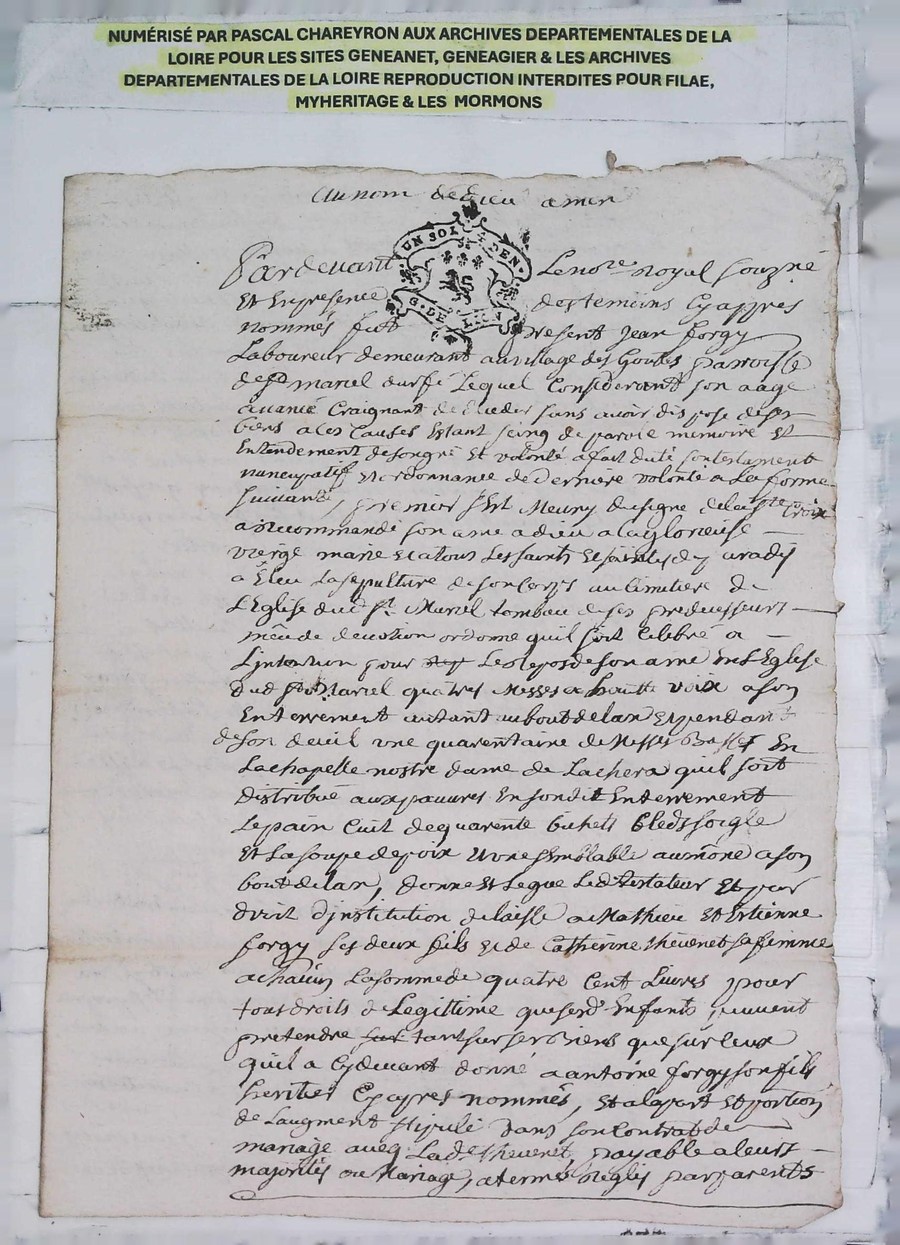 NUMÉRISÉ PAR PASCAL CHAREYRON AUX ARCHIVES DEPARTEMENTALES DE LA
LOIRE POUR LES SITES GENEANET, GENEAGIER & LES ARCHIVES
DEPARTEMENTALES DE LA LOIRE REPRODUCTION INTERDITES POUR FILAE,
MYHERITAGE & LES MORMONS
Au nom de dieu amen
UN SOL 4 DEN.
G. DE LION
Pardevant Le no.re royal souzné
Et En presence des temoins Cy appres
nommés fut present Jean forgy
Laboureur demeurant au vilage des Goutes parroisse
de St marcel durfé Lequel Considerant son aage
avancé Craignant de deceder sans avoir dispose de ses
biens a Ces Causes Estant seing de parole memoire Et
Entandement de son gré Et volonté a fait testament
nuncupatif Et ordonnance de Derniere volonté a La forme
suivante, premier sest Meuny du signe de la ste Croix
a recommandé son ame a dieu a la glorieuse
vierge marie Et a tous Les saints Et saintes de paradis
a Eleu La sepulture de son Corps au Cimitiere de
LEglise dud St Marcel tombeau de ses predecesseurs
meu de devotion ordonne quil soit Celebré a
Lintention pour Le repos de son ame En LEglise
dud St Marcel quatres Messes a haute voix a son
Enterrement autant au bout de lan Et pendant
de son deuil une quarentaine de Messes Basses En
La chapelle nostre dame de Lachera quil soit
distribué aux pauvres En son dit Enterrement
Le pain Cuit de quarente bichets bled soigle
Et La soupe de poix Et une semblable aumône a son
bout de lan, donne Et Legue Led Testateur Et par
droit dinstitution delaisse a Mathieu Et Estienne
forgy ses deux fils Et de Catherine thevenet sa femme
a chacun La somme de quatre Cent Livres pour
tout droits de Legittime que sesd Enfants peuvent
pretendre tant sur ses Biens que sur Ceux
quil a Cy devant donné a antoine forgy son fils
heritier Cy apres nommés, Et a la part Et portion
de Laugment stipulé dans son Contrat de
mariage aveq Lad thevenet, payable a Leurs
majorités ou Mariage, a termes Reglés par parents